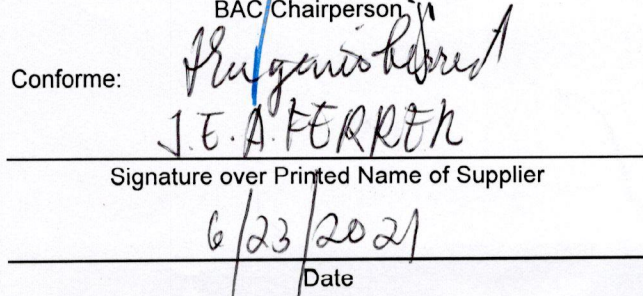 BAC Chairperson
Conforme:
J. E. A. FERRER
Signature over Printed Name of Supplier
6/23/2021
Date